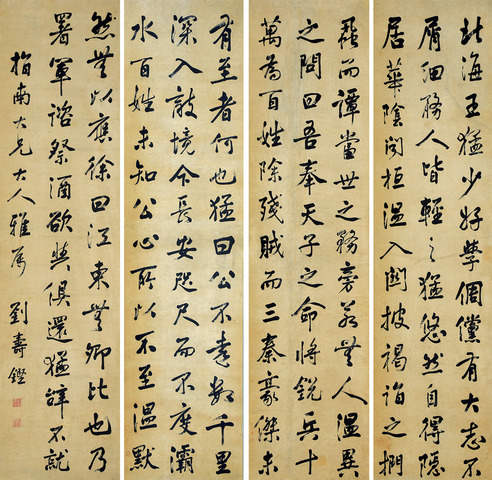 北海王猛少好學倜儻有大志不
屑細務人皆輕之猛悠然自得隱
居華陰聞桓溫入關披褐詣之捫
蝨而譚當世之務旁若無人溫異
之問曰吾奉天子之命將銳兵十
萬為百姓除殘賊而三秦豪傑未
有至者何也猛曰公不遠數千里
深入敵境今長安咫尺而不度灞
水百姓未知公心所以不至溫默
然無以應徐曰江東無卿比也乃
署軍諮祭酒欲與俱還猛辭不就
指南大兄大人雅屬 劉壽